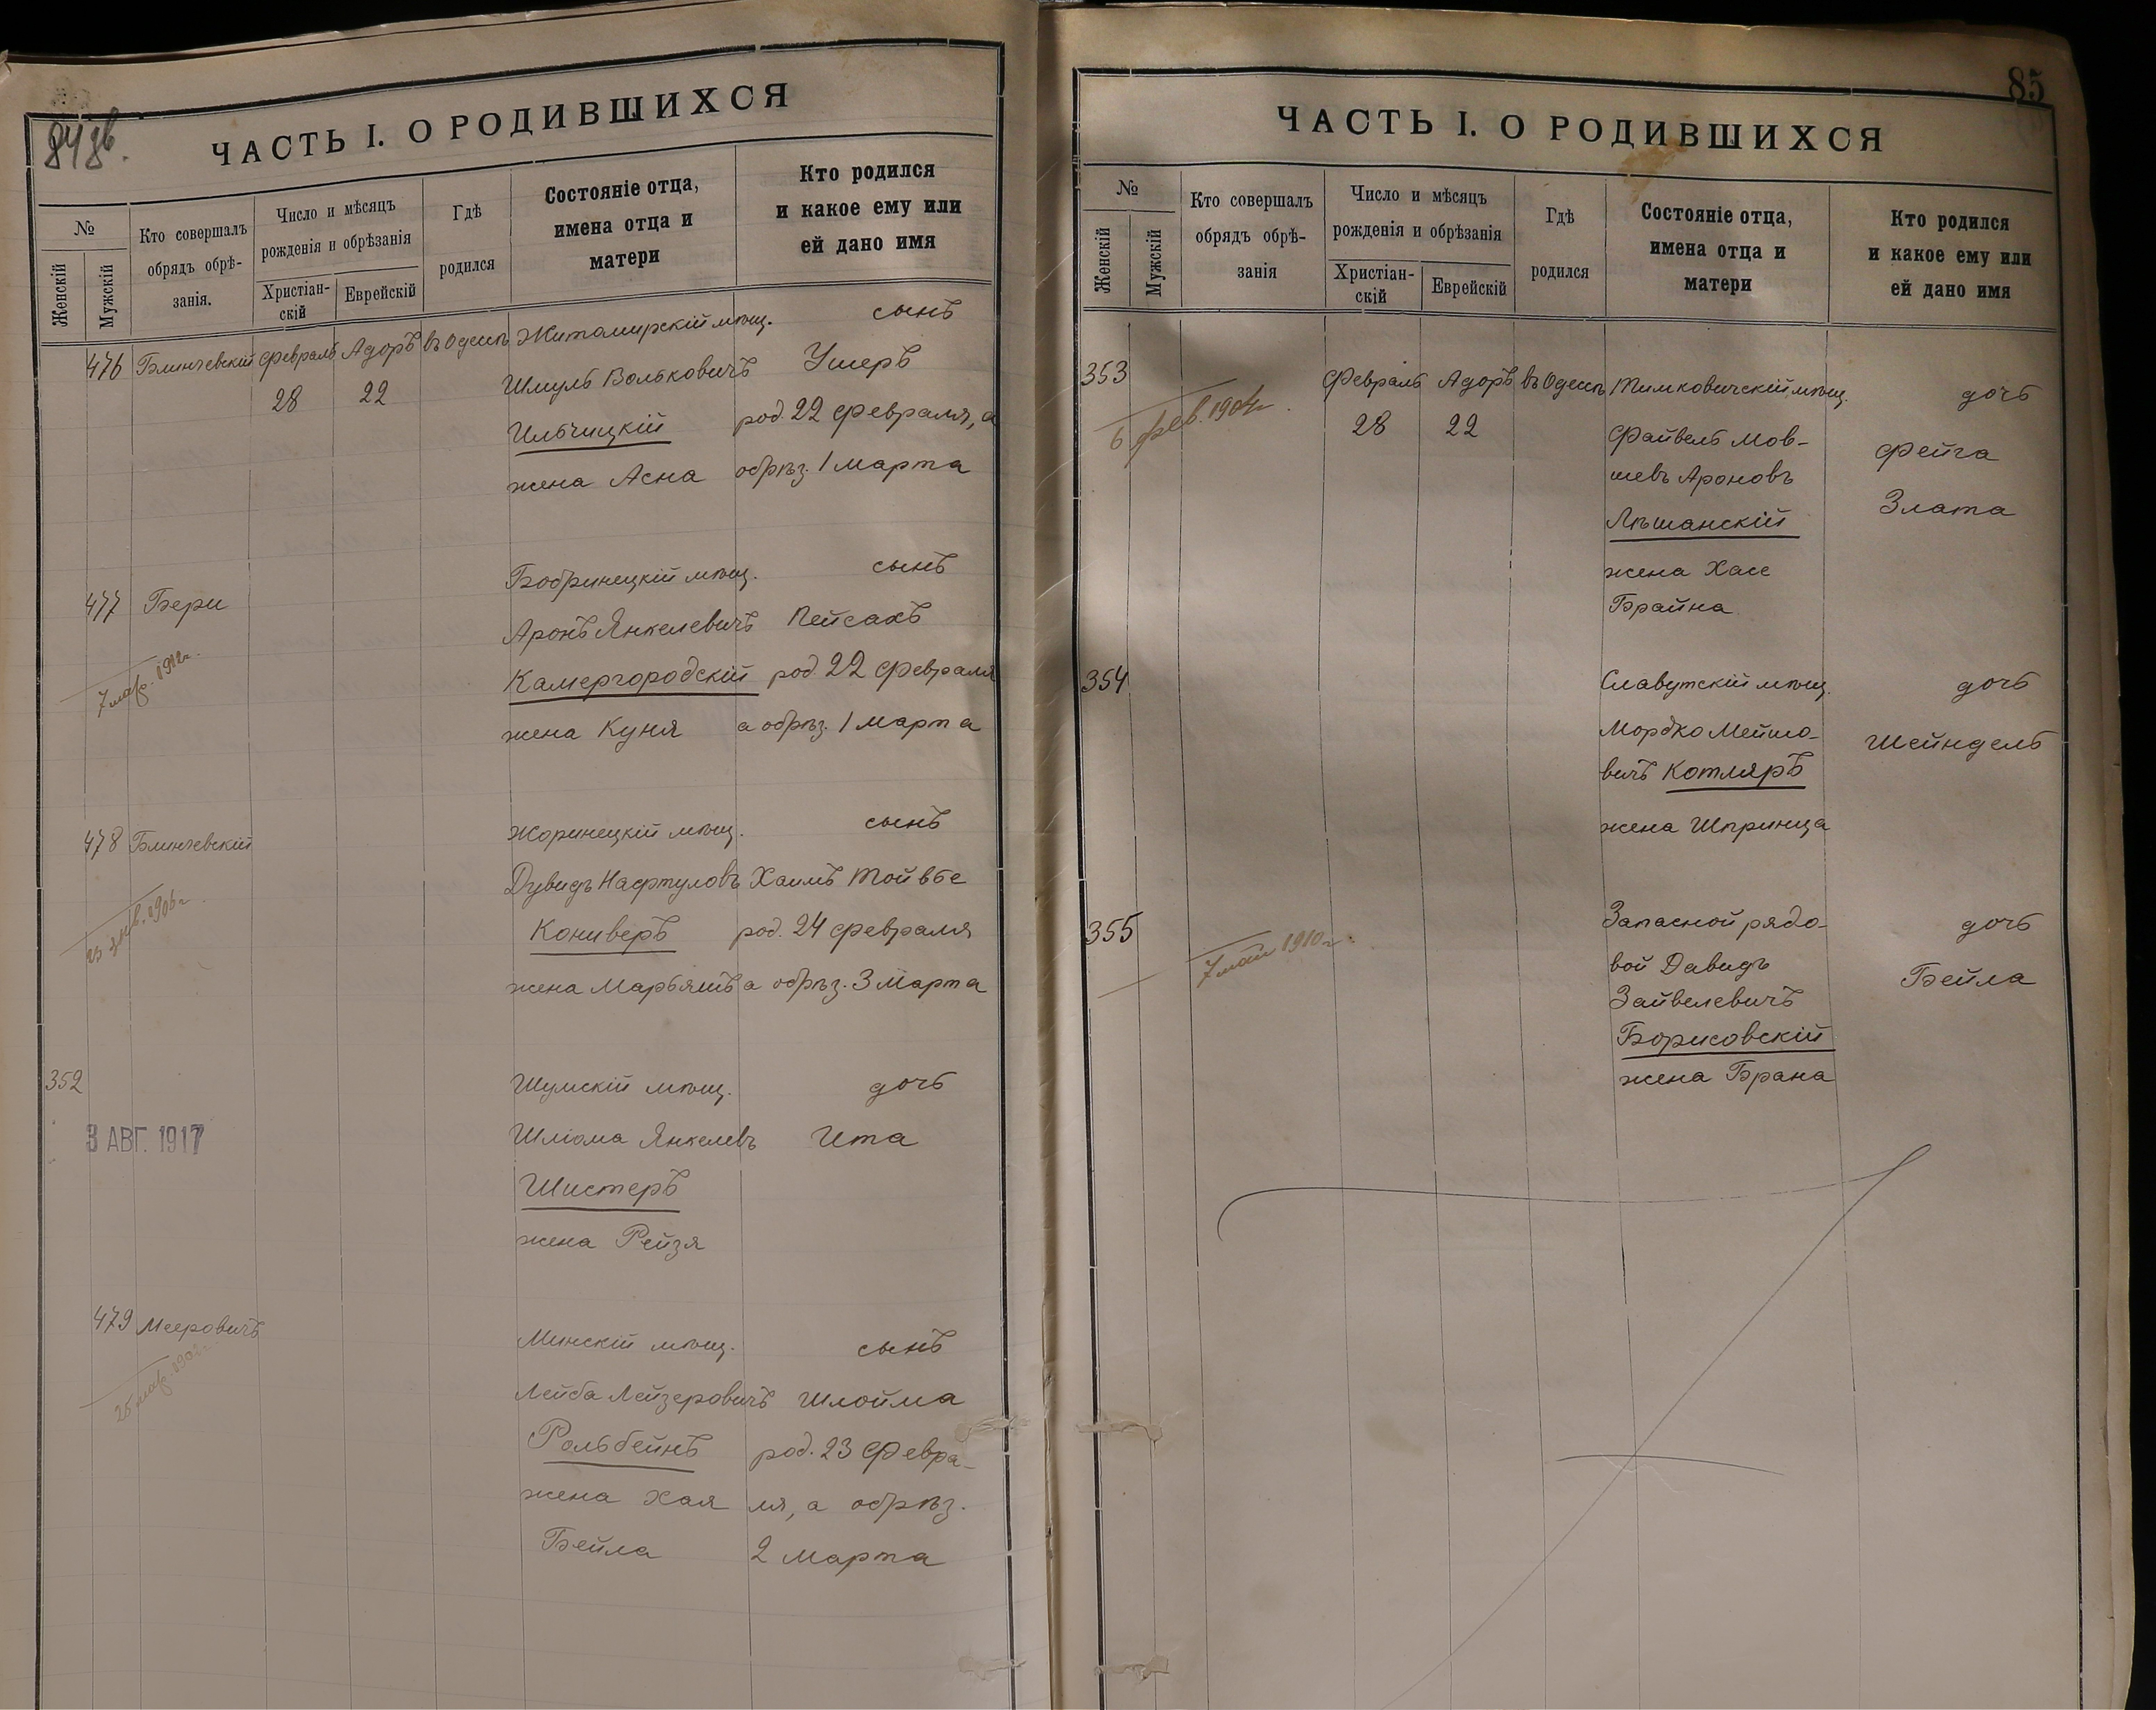 84 зв.
ЧАСТЬ I. О РОДИВШИХСЯ
№
Женскій
Мужскій
Кто совершалъ
обрядъ обрѣ-
занія.
Число и мѣсяцъ
рожденія и обрѣзанія
Христіан-
скій
Еврейскій
Гдѣ
родился
Состояніе отца,
имена отца и
матери
Кто родился
и какое ему или
ей дано имя
476 Блинчевскій Февраль Адоръ въ Одессѣ Житомирскій мѣщ. сынъ
28 22 Шмуль Вольковичъ Ушеръ
Ильчицкій род. 22 февраля, а
жена Асна обрѣз. 1 марта
477 Бери Бобринецкій мѣщ. сынъ
Аронъ Янкелевичъ Пейсахъ
Камергородскій род. 22 февраля
7 мар. 1912 г.
жена Куня а обрѣз. 1 марта
478 Блинчевскій Жоринецкій мѣщ. сынъ
Дувидъ Нафтуловъ Хаимъ Тойвье
Кониверъ род. 24 февраля
23 янв. 1906 г.
жена Марьямъ а обрѣз. 3 марта
352 Шумскій мѣщ. дочь
3 АВГ. 1917
Шліома Янкелевъ Ита
Шистеръ
жена Рейзя
479 Мееровичъ Минскій мѣщ. сынъ
Лейба Лейзеровичъ Шлойма
Рольбейнъ род. 23 Февра-
жена Хая ля, а обрѣз.
Бейла 2 марта
85
ЧАСТЬ I. О РОДИВШИХСЯ
№
Женскій
Мужскій
Кто совершалъ
обрядъ обрѣ-
занія
Число и мѣсяцъ
рожденія и обрѣзанія
Христіан-
скій
Еврейскій
Гдѣ
родился
Состояніе отца,
имена отца и
матери
Кто родился
и какое ему или
ей дано имя
353 Февраль Адоръ въ Одессѣ Тимковичскій мѣщ. дочь
6 фев. 1904 г.
28 22 Файвель Мов- Фейга
шевъ Ароновъ
Лѣшанскій Злата
жена Хасе
Брайна
354 Славутскій мѣщ. дочь
Мордко Мейшо- Шейндель
вичъ Котляръ
жена Шпринца
355 Запасной рядо- дочь
7 мая 1910 г.
вой Давидъ Бейла
Зайвелевичъ
Борисовскій
жена Брана